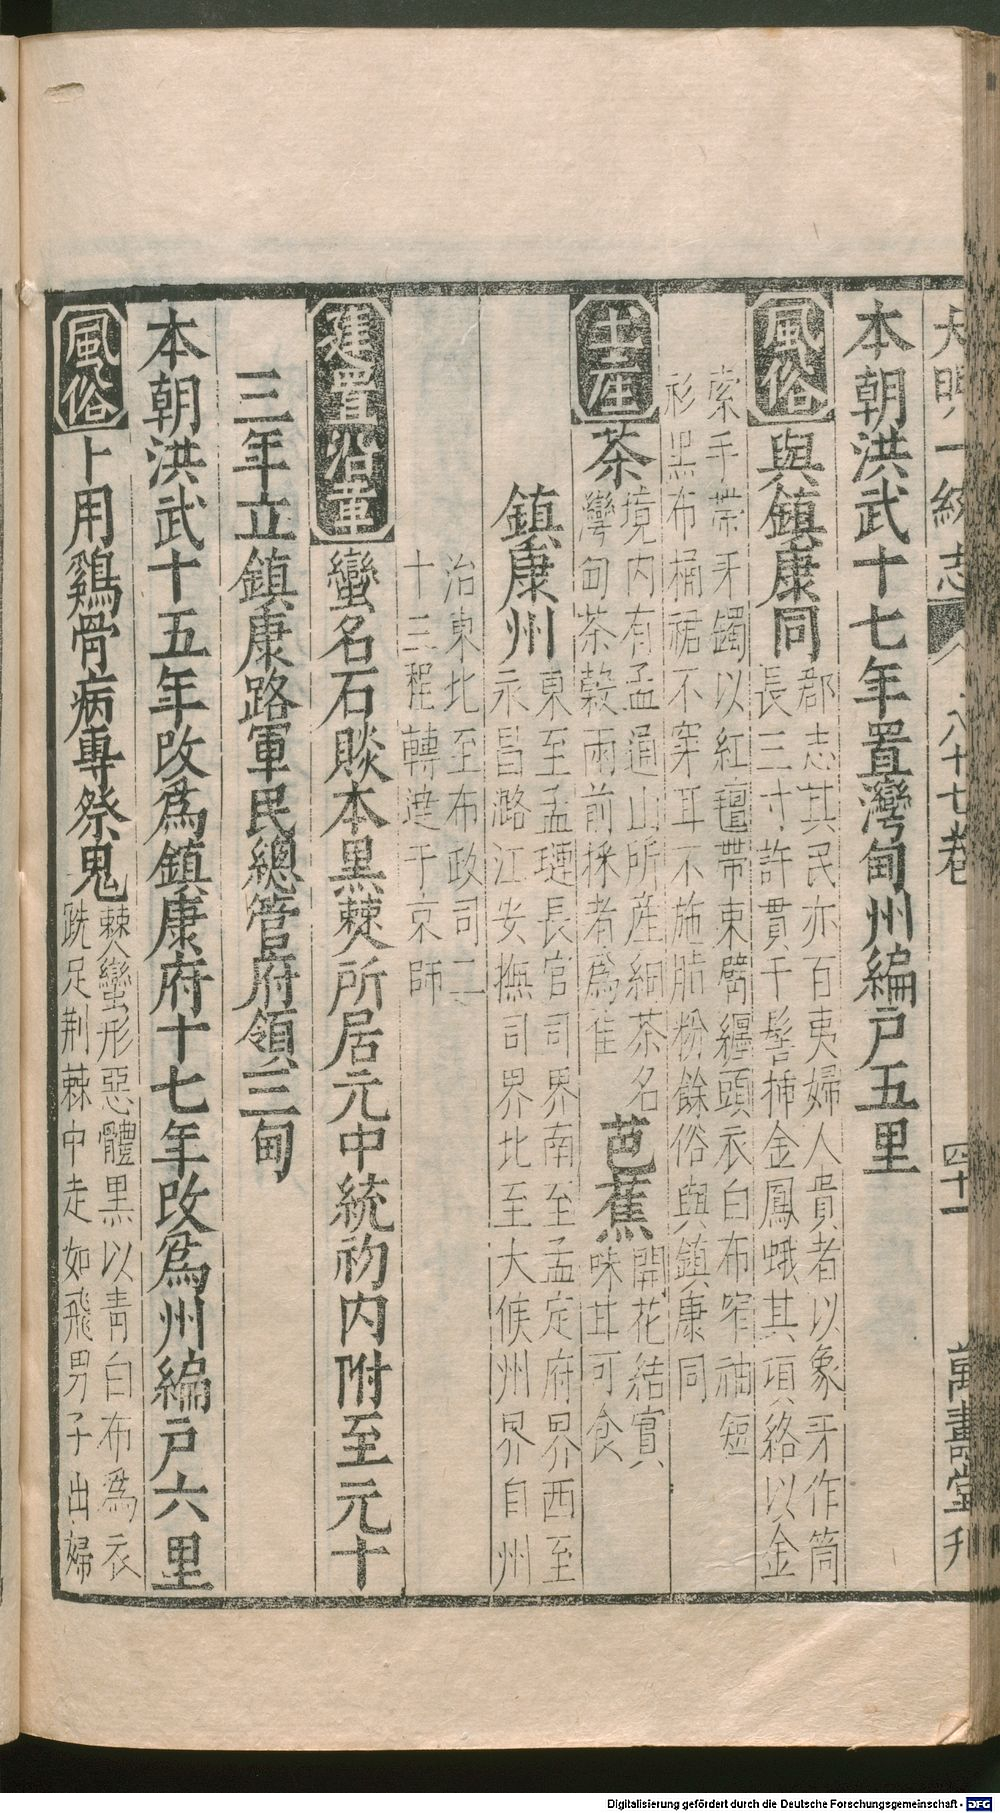 大明一統志 八十七卷 四十一 萬壽堂刋
本朝洪武十七年置灣甸州編戸五里
風俗 與鎮康同 郡志其民亦百夷婦人貴者以象牙作筒
長三寸許貫于髻揷金鳳蛾其項絡以金
索手帶牙鐲以紅氊帶束臂纏頭衣白布窄袖短
衫黑布桶裙不穿耳不施脂粉餘俗與鎮康同
土產 茶 境内有孟通山所産細茶名
灣甸茶穀雨前採者爲佳
芭蕉 開花結實
味甘可食
鎮康州 東至孟璉長官司界南至孟定府界西至
永昌潞江安撫司界北至大候州界自州
治東北至布政司二
十三程轉達于京師
建置沿革 蠻名石賧本黑僰所居元中統初内附至元十
三年立鎮康路軍民總管府領三甸
本朝洪武十五年改爲鎮康府十七年改爲州編戸六里
風俗 卜用鷄骨病專祭鬼 僰蠻形惡體黑以靑白布爲衣
跣足荆棘中走如飛男子出婦
Digitalisierung gefördert durch die Deutsche Forschungsgemeinschaft - DFG